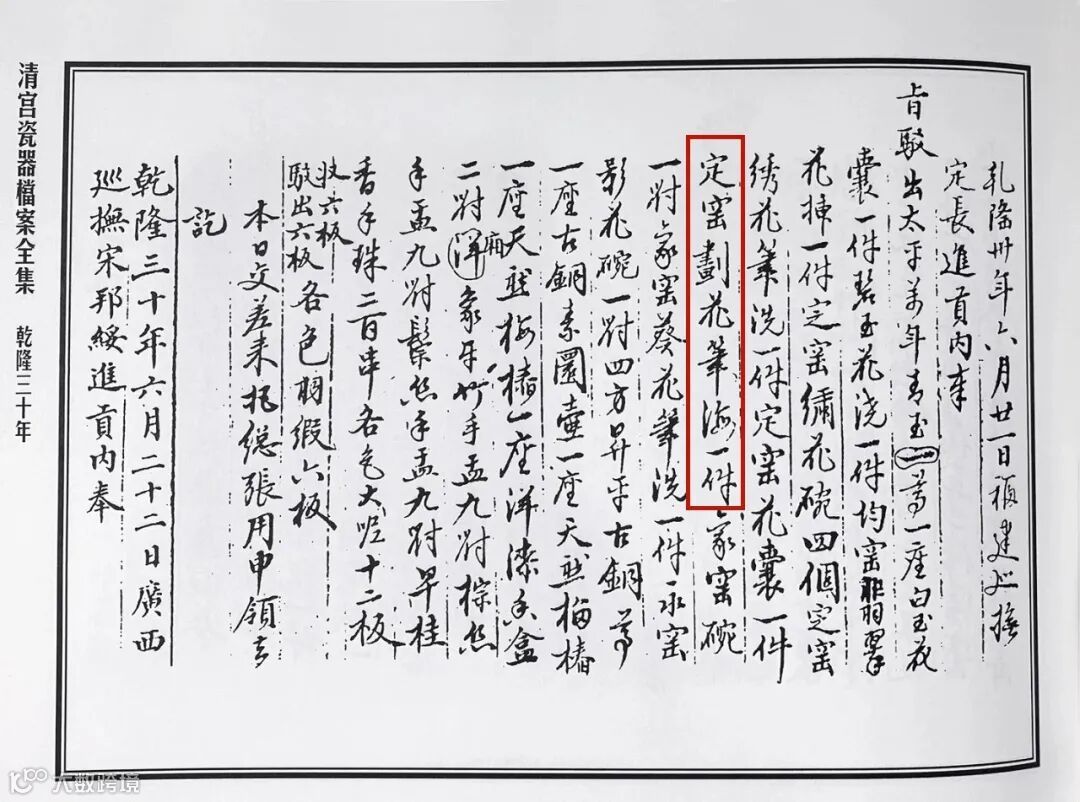 乾隆卅年六月廿一日福建巡撫
定長進貢内奉
旨駁出太平萬年青玉尊一座白玉花
囊一件碧玉花澆一件均窑翡翠
花揷一件定窑繡花碗四個定窑
綉花筆洗一件定窑花囊一件
定窑劃花筆海一件哥窑碗
一對哥窑葵花筆洗一件永窑
影花碗一對四方昇平古銅尊
一座古銅素圜壷一座天然梅樁
一座天然梅樁一座洋漆香盒
二對洋廂象牙竹手盂九對棕絲
手盂九對鬃絲手盂九對早桂
香手珠二百串各色大呢十二板
收六板
駁出六板各色羽緞六板
本日交差来把総張用申領去
訖
乾隆三十年六月二十二日廣西
巡撫宋邦綏進貢内奉
清宫瓷器檔案全集 乾隆三十年
大数跨境